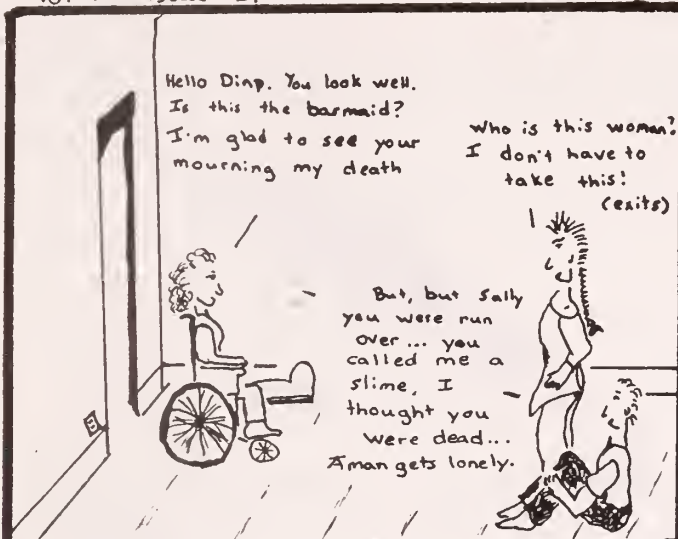 Hello Dinp. You look well.
Is this the barmaid?
I'm glad to see your
mourning my death
Who is this woman?
I don't have to
take this!
(exits)
But, but Sally
you were run
over... you
called me a
slime, I
thought you
were dead...
A man gets lonely.